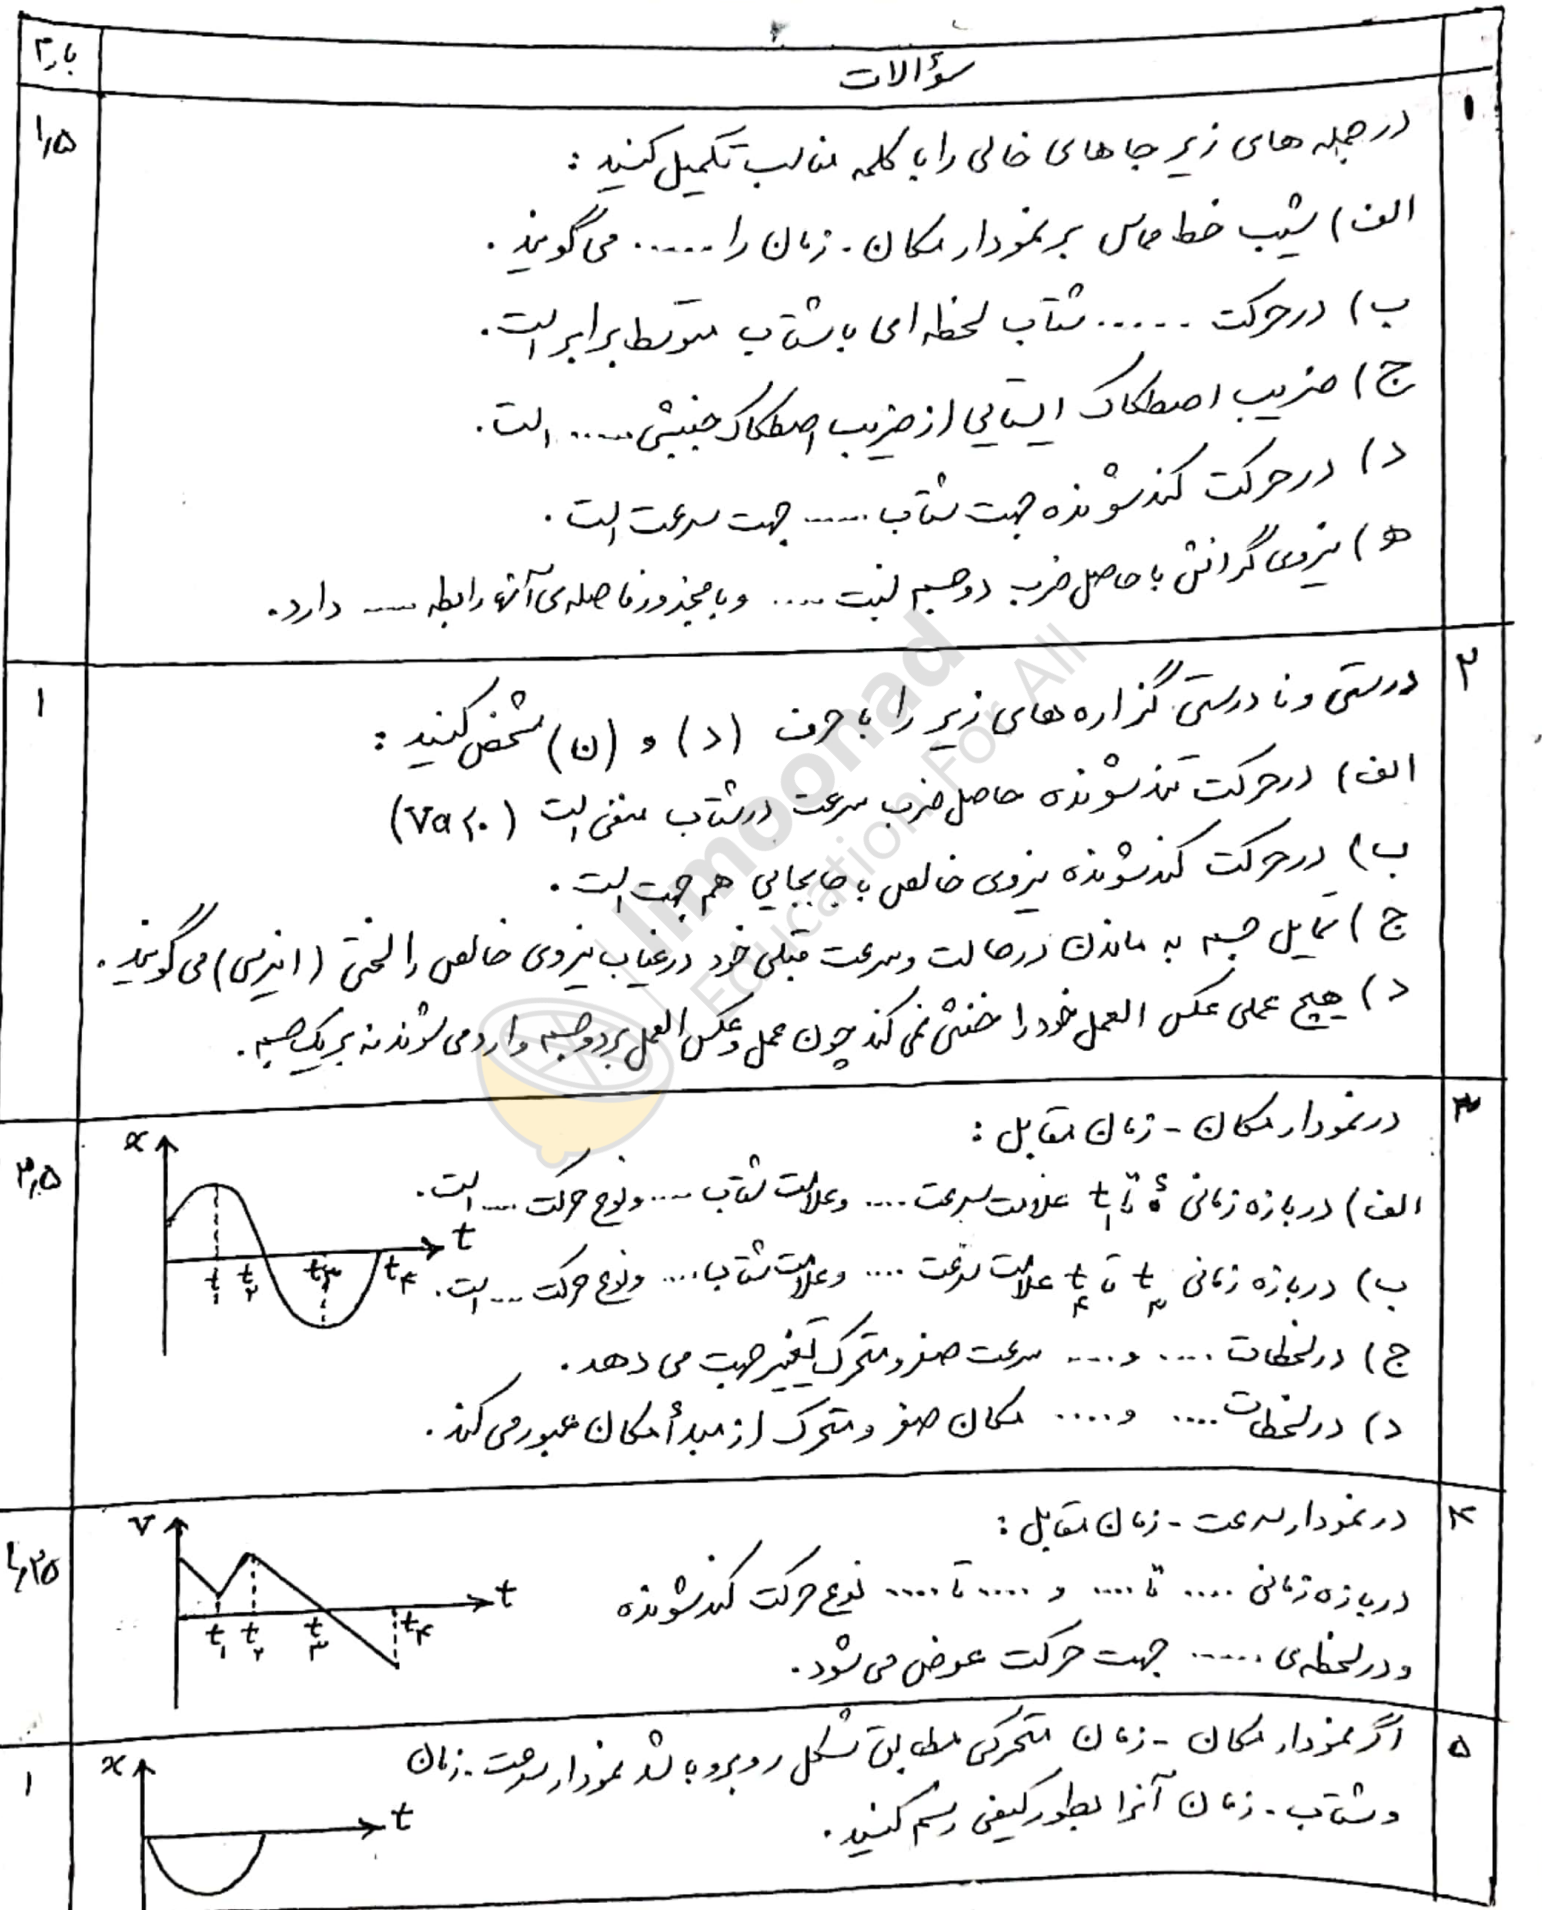 سؤالات
بارم
۱
۱٫۵
در جمله های زیر جاهای خالی را با کلمه مناسب تکمیل کنید :
الف) شیب خط مماس بر نمودار مکان - زمان را ...... می گویند .
ب) در حرکت ...... شتاب لحظه ای با شتاب متوسط برابر است .
ج) ضریب اصطکاک ایستایی از ضریب اصطکاک جنبشی ...... است .
د) در حرکت کندشونده جهت شتاب ...... جهت سرعت است .
ه) نیروی گرانش با حاصل ضرب دو جسم نسبت .... و با مجذور فاصله ی آنها رابطه .... دارد .
۲
۱
درستی و نادرستی گزاره های زیر را با حرف (د) و (ن) مشخص کنید :
الف) در حرکت تندشونده حاصل ضرب سرعت در شتاب منفی است (va<۰)
ب) در حرکت کندشونده نیروی خالص با جابجایی هم جهت است .
ج) تمایل جسم به ماندن در حالت و سرعت قبلی خود در غیاب نیروی خالص را لختی (اینرسی) می گویند .
د) هیچ عملی عکس العمل خود را خنثی نمی کند چون عمل و عکس العمل بر دو جسم وارد می شوند نه بر یک جسم .
limoonad
Education For All
۳
۲٫۵
در نمودار مکان - زمان مقابل :
الف) در بازه زمانی ۰ تا t۱ علامت سرعت .... و علامت شتاب .... و نوع حرکت .... است .
ب) در بازه زمانی t۳ تا t۴ علامت سرعت .... و علامت شتاب .... و نوع حرکت .... است .
ج) در لحظات .... و .... سرعت صفر و متحرک تغییر جهت می دهد .
د) در لحظات .... و .... مکان صفر و متحرک از مبدأ مکان عبور می کند .
x
t
t۱ t۲ t۳ t۴
۴
۱٫۲۵
در نمودار سرعت - زمان مقابل :
در بازه زمانی .... تا .... و .... تا .... نوع حرکت کندشونده
و در لحظه ی ...... جهت حرکت عوض می شود .
v
t
t۱ t۲ t۳ t۴
۵
۱
اگر نمودار مکان - زمان متحرکی مطابق شکل روبرو باشد نمودار سرعت - زمان
و شتاب - زمان آنرا بطور کیفی رسم کنید .
x
t